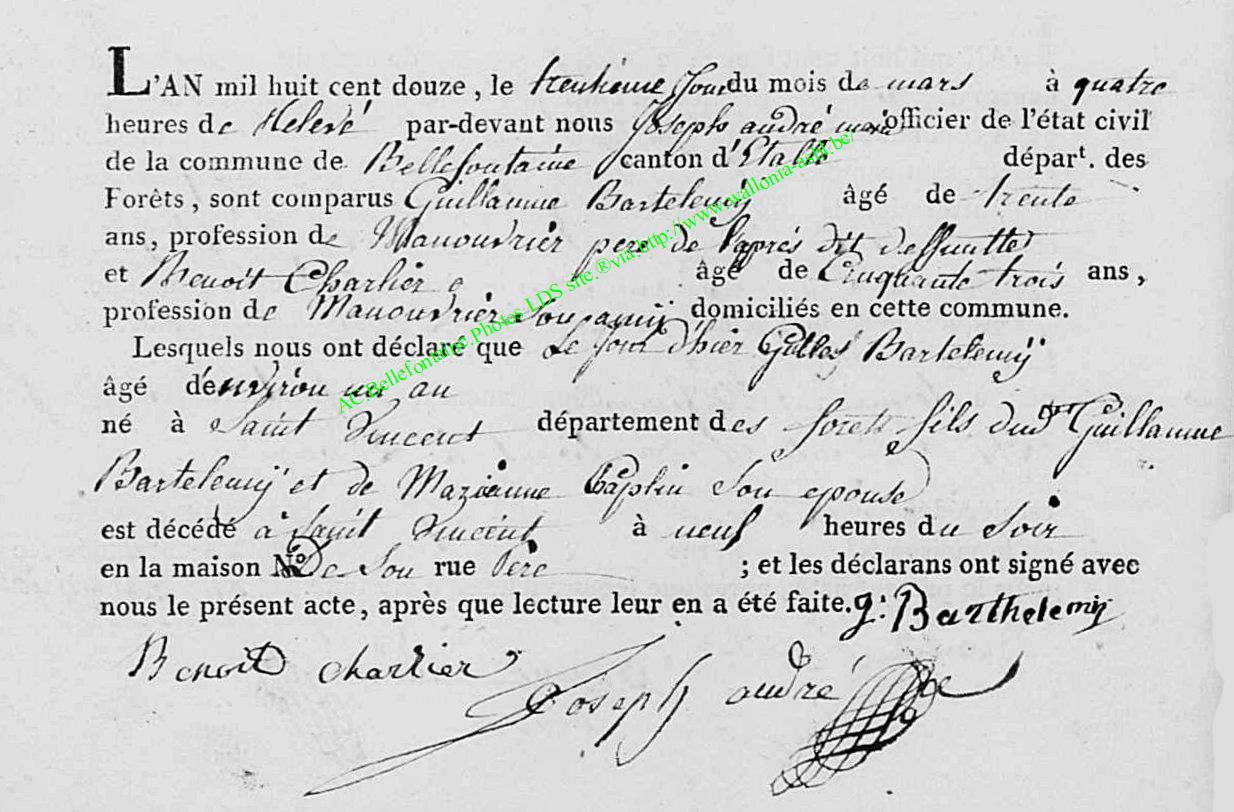 L'AN mil huit cent douze, le trentieme Jour du mois de mars à quatre
heures de Relevé par-devant nous Joseph andré maire officier de l'état civil
de la commune de Bellefontaine canton d'Etalle dépar^t. des
Forêts, sont comparus Guillaume Bartelemÿ âgé de trente
ans, profession de Manouvrier pere de l'apres dit deffunt
et Benoit Charlier âgé de Cinquante trois ans,
profession de Manouvrier Son amÿ domiciliés en cette commune.
Lesquels nous ont déclaré que Le jour d'hier Gilles Bartelemÿ
âgé d'environ un an
né à Saint Vincent département des forets fils dud^t Guillaume
Bartelemÿ et de Marianne Son epouse
est décédé à Saint Vincent à neuf heures du Soir
en la maison N.º De Son rue Père ; et les déclarans ont signé avec
nous le présent acte, après que lecture leur en a été faite. g: Barthelemÿ
Benoit charlier Joseph andré
AC Bellefontaine Photos LDS site.®via.http://www.wallonia-asbl.be/